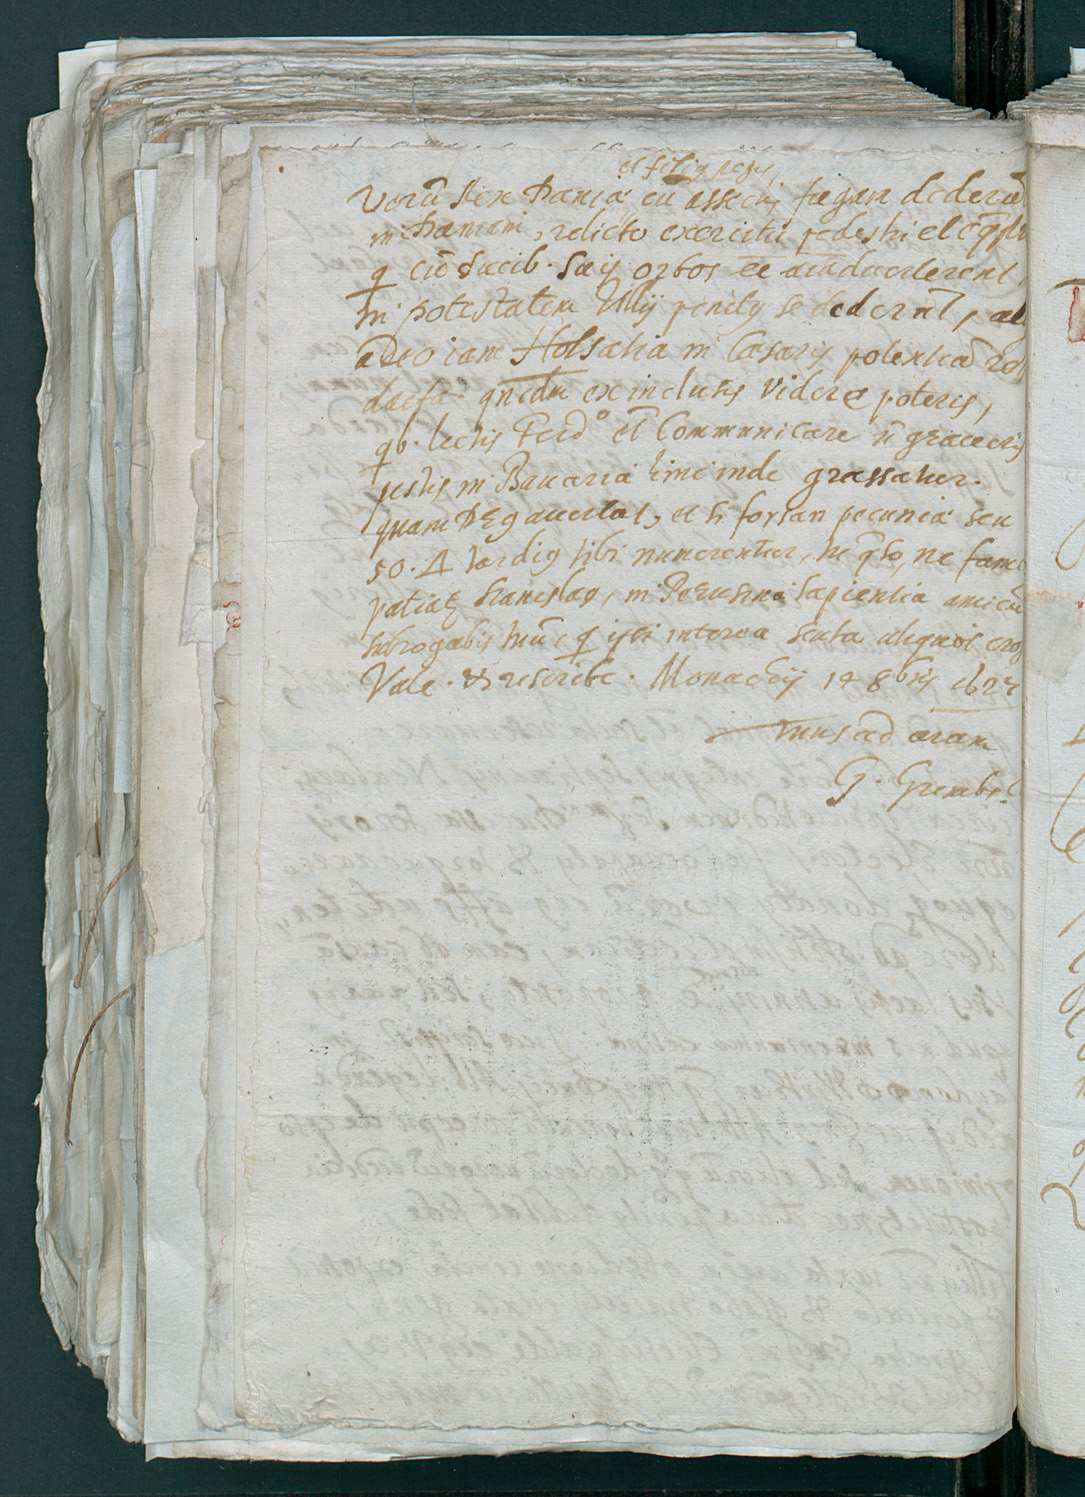 et filiy regis,
Verũ Rex Daniæ cũ assecly fugam dederat
in Daniam, relicto exercitu pedestri et
q cũ Ducib. suis orbos ee aĩaduerterent,
in potestatem Tillij penity se dederũt,
adeo iam Holsatia in Cæsaris potentiã re
dacta. quidẽ ex inclusis videre poteris,
qb. lectis Ferd° et Communicare ñ graueris
pestis in Bauaria hinc inde grassatur.
quam DEg auertat, et si forsan pecunia seu
50. Δ tardig tibi numerentur, ne fame
patiat Stanislaq, in Perusina sapientia amicũ
subrogabis hũc q ipsi interea scuta aliquot
Vale. & rescribe. Monachij 14 8bris 1627
tuus ad aram
G. Grembs.